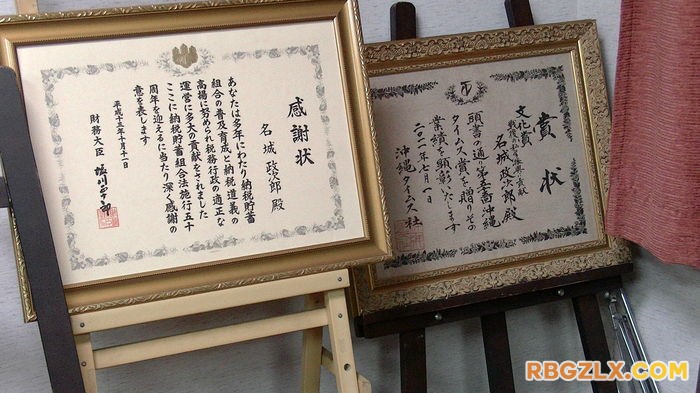 感謝状
名城 政次郎 殿
あなたは多年にわたり納税貯蓄
組合の普及育成と納税道義の
高揚に努められ税務行政の適正な
運営に多大の貢献をされました
ここに納税貯蓄組合法施行五十
周年を迎えるに当たり深く感謝の
意を表します
平成十三年十月十一日
財務大臣 塩川正十郎
賞状
文化賞
名城 政次郎 殿
頭書の通り第五十五回沖縄
タイムス賞を贈りその
業績を顕彰いたします
二〇一一年七月一日
沖縄タイムス社
RBGZLX.COM